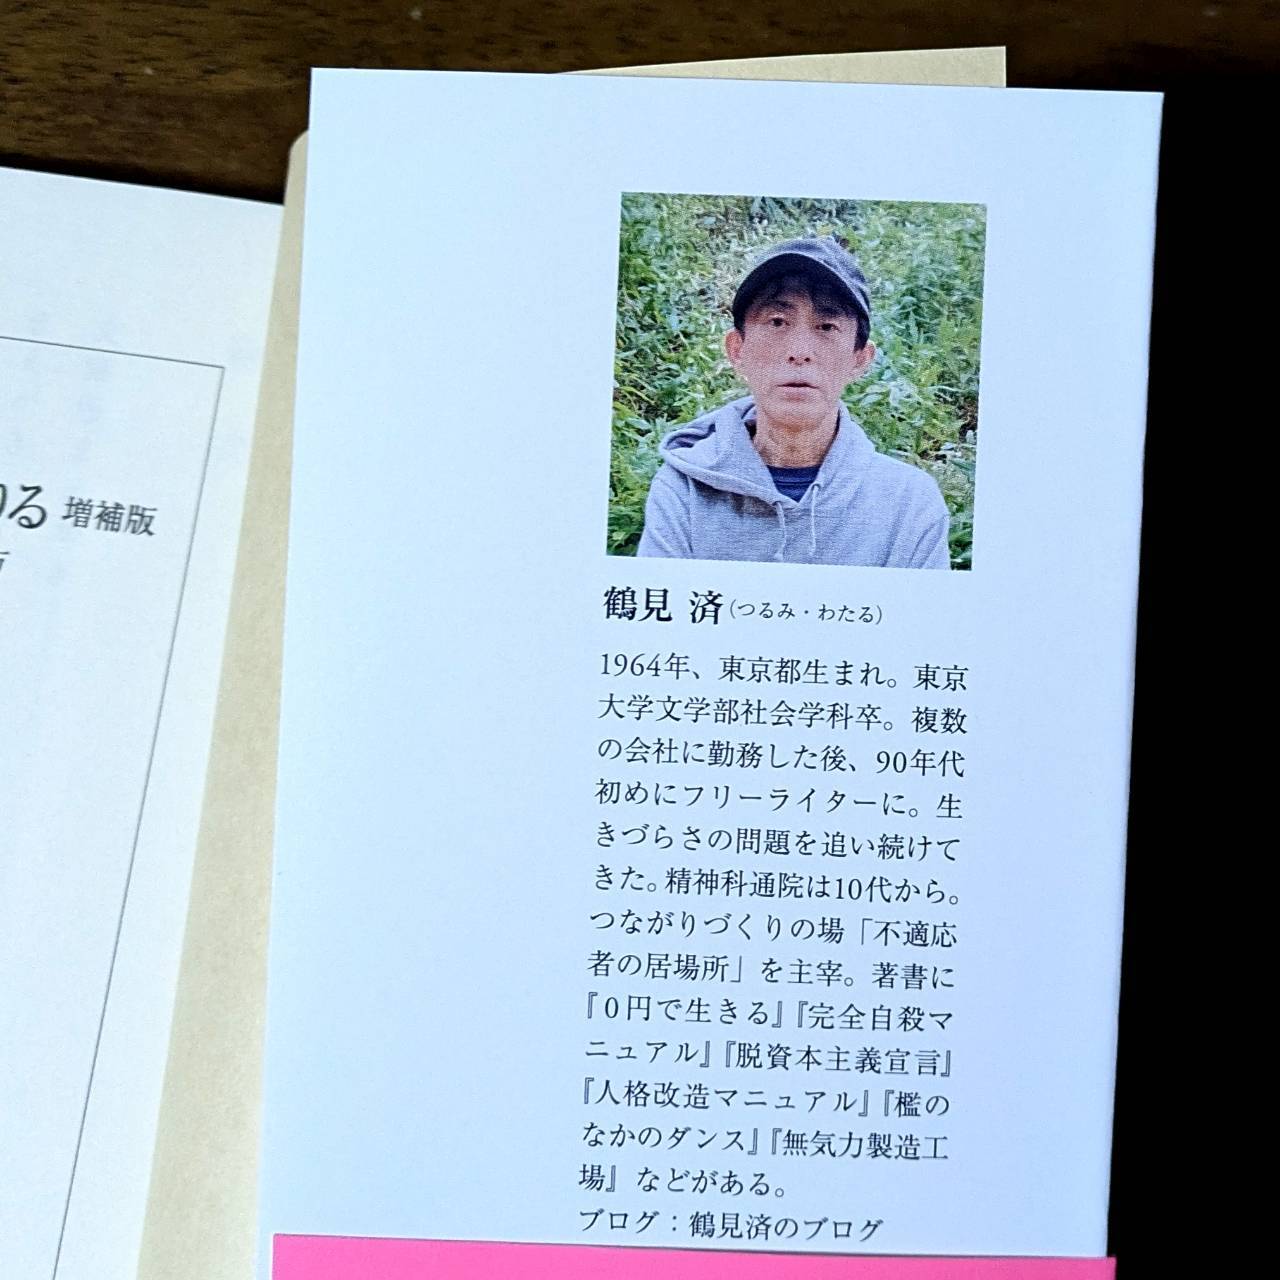 る 増補版
鶴見 済(つるみ・わたる)
1964年、東京都生まれ。東京
大学文学部社会学科卒。複数
の会社に勤務した後、90年代
初めにフリーライターに。生
きづらさの問題を追い続けて
きた。精神科通院は10代から。
つながりづくりの場「不適応
者の居場所」を主宰。著書に
『0円で生きる』『完全自殺マ
ニュアル』『脱資本主義宣言』
『人格改造マニュアル』『檻の
なかのダンス』『無気力製造工
場』などがある。
ブログ：鶴見済のブログ